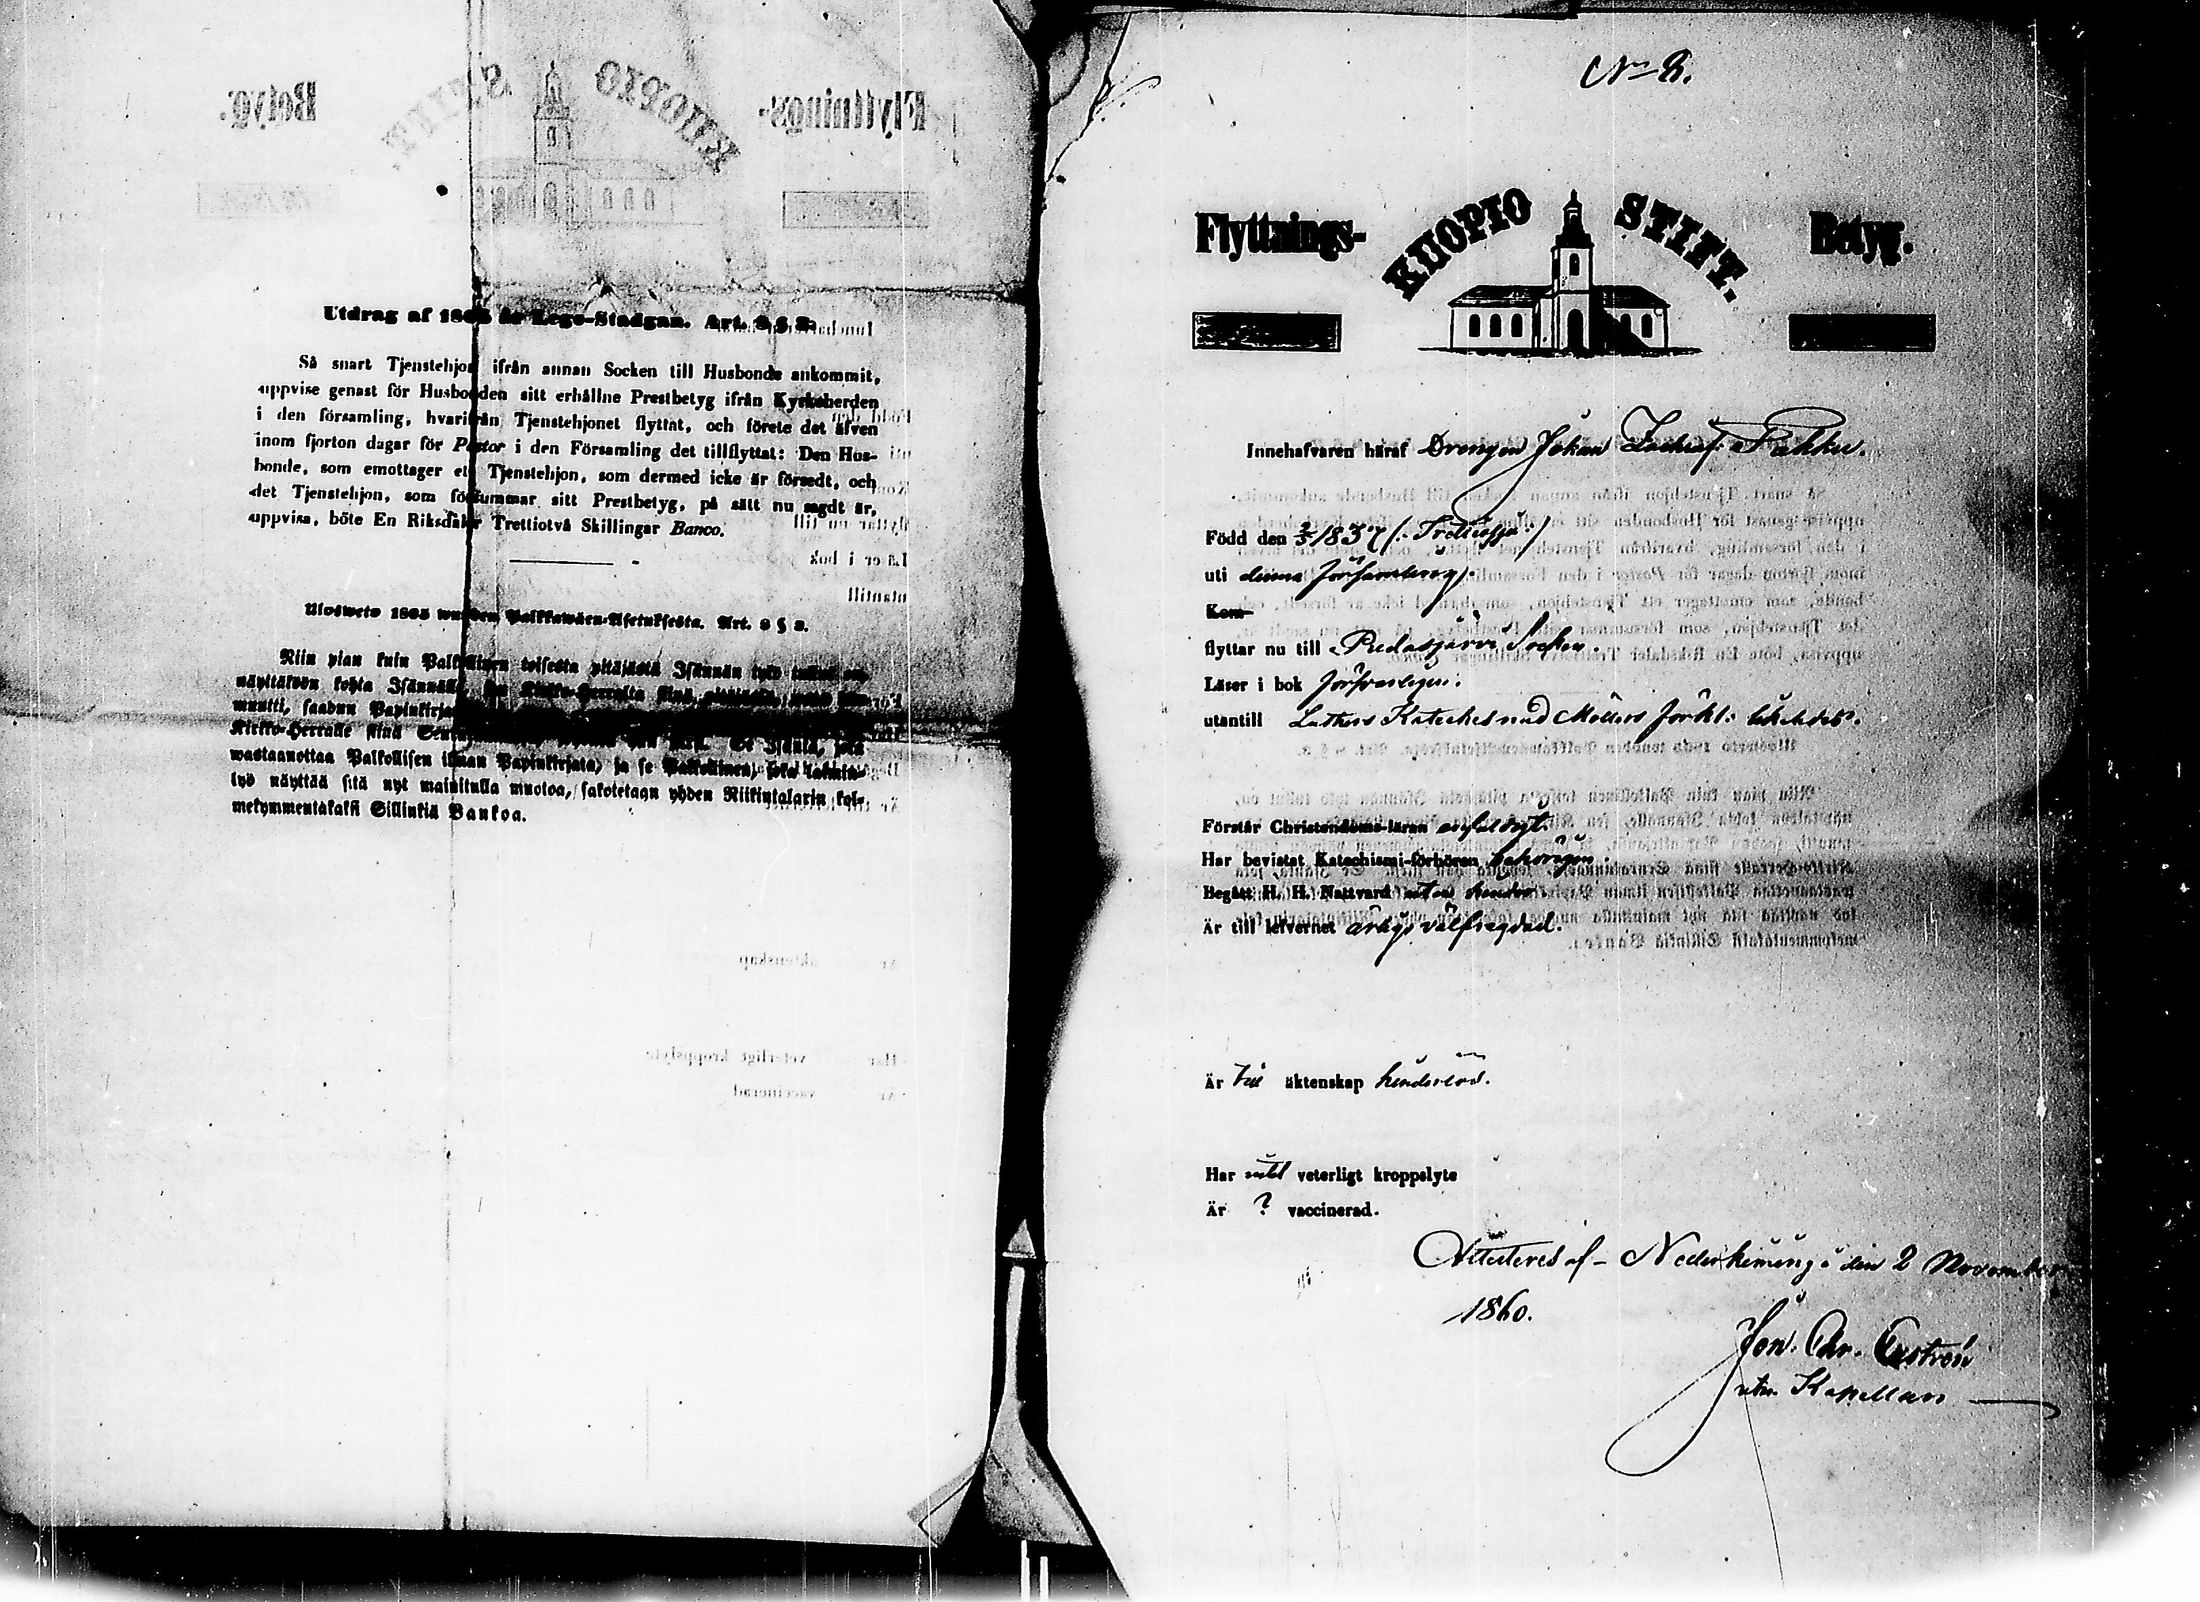 Utdrag af 1805 år Lego-Stadgan. Art. 9 § 2.
Så snart Tjenstehjon ifrån annan Socken till Husbonde ankommit,
uppvise genast för Husbonden sitt erhållne Prestbetyg ifrån Kyrkoherden
i den församling, hvarifrån Tjenstehjonet flyttat, och förete det äfven
inom fjorton dagar för Pastor i den Församling det tillflyttat: Den Hus-
bonde, som emottager ett Tjenstehjon, som dermed icke är försedt, och
det Tjenstehjon, som försummar sitt Prestbetyg, på sätt nu sagdt är,
uppvisa, böte En Riksdaler Trettiotvå Skillingar Banco.
Ulosweto 1805 wuoden Palkkawäen-Asetuksesta. Art. 9 § 2.
Niin pian kuin Palkollinen toisesta pitäjästä Isännän tykö tullut on,
näyttäköön kohta Isännälle, sen Kirkko-Herralta siinä
muutti, saadun Papinkirjan
Kirkko-Herralle siinä Se Isäntä, joka
wastaanottaa Palkollisen ilman Papinkirjata, ja se Palkollinen, joka laimin-
lyö näyttää sitä nyt mainitulla muotoa, sakotetaan yhden Riikintalarin kol-
mekymmentäkaksi Sillinkiä Bankoa.
No 8.
Flyttnings- KUOPIO STIFT. Betyg.
Innehafvaren häraf Drengen Johan Zachrias: Pahku.
Född den 2/3 1837
uti denna församling.
Kom
flyttar nu till Pudasjärvi Socken.
Läser i bok försvarligen.
utantill Luthers Kateches med Möllers förkl:
Förstår Christendoms-läran enfaldigt.
Har bevistat Katechismi-förhören behörigen.
Begått H. H. Nattvard utan hinder
Är till lefvernet ärlig välfrägdad.
Är till äktenskap hinderlös.
Har intet veterligt kroppslyte
Är ? vaccinerad.
Attesteras af Nederkiming i den 2 November
1860.
Joh. Chr.
Kapellan